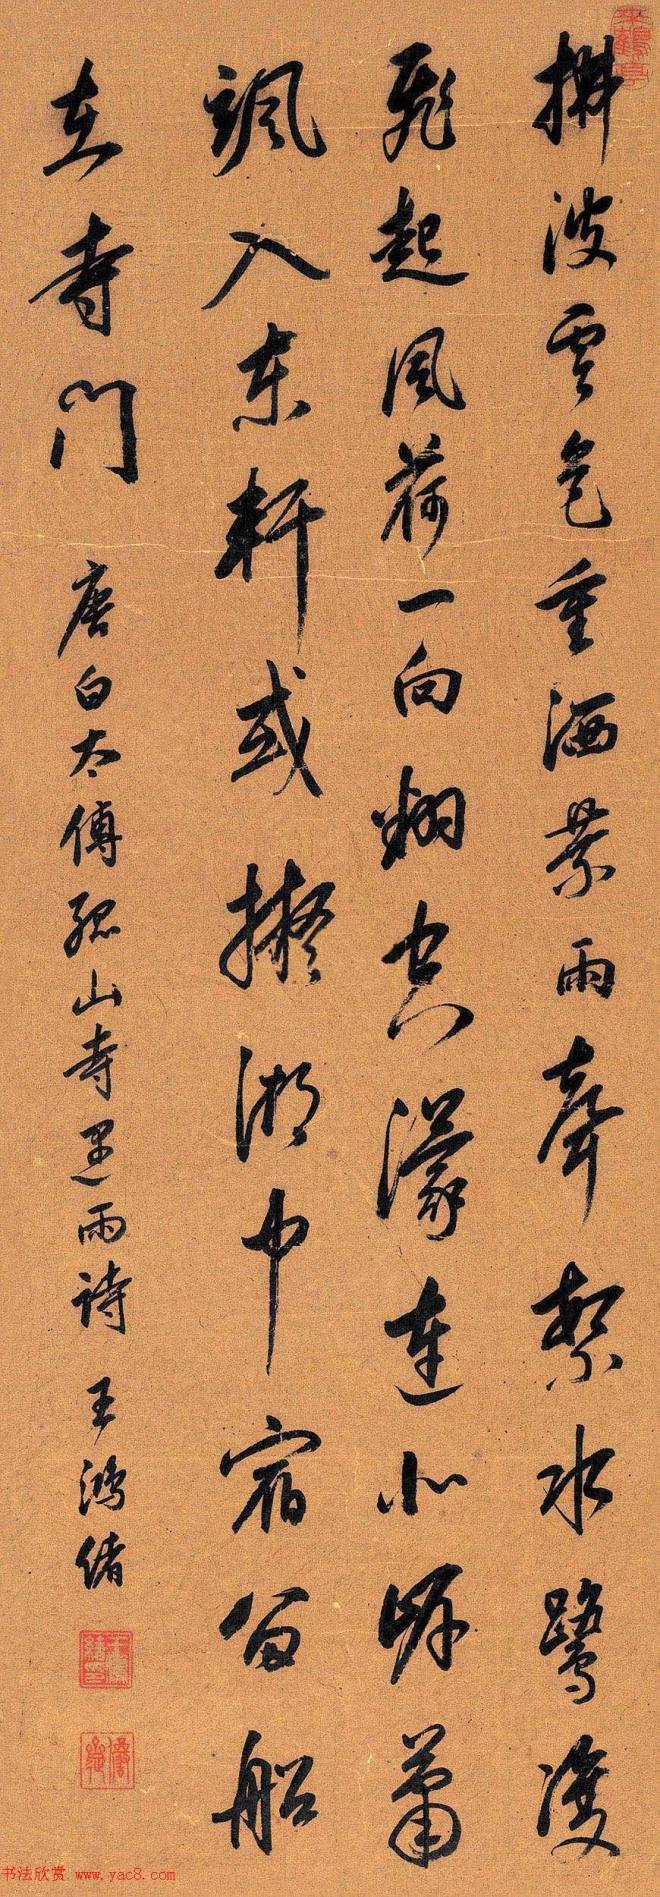 來鶴亭
拂波雲色重洒葉雨聲繁水鷺雙
飛起風荷一向翻空濛連北岸蕭
颯入東軒或擬湖中宿留船
在寺門 唐白太傅孤山寺遇雨詩 王鴻緒
王鴻緒印
书法欣赏 www.yac8.com